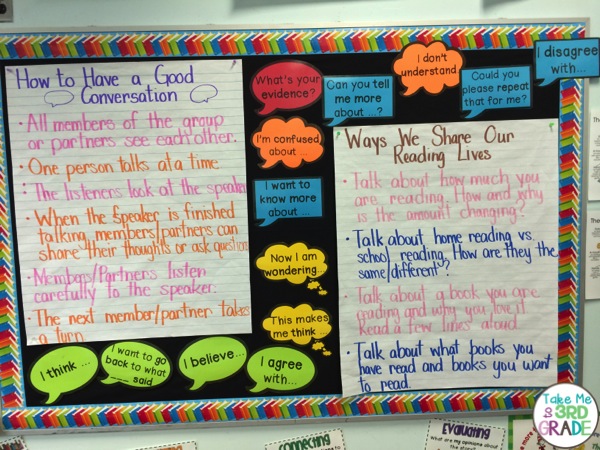 How to Have a Good
Conversation
• All members of the group
or partners see each other.
• One person talks at a time
• The listeners look at the speaker
• When the speaker is finished
talking, members/partners can
share their thoughts or ask questions
• Members/Partners listen
carefully to the speaker.
• The next member/partner takes
a turn.
What's your
evidence?
Can you tell
me more
about ...?
I don't
understand
Could you
please repeat
that for me?
I disagree
with...
I'm confused
about ...
I want to
know more
about ...
Now I am
wondering...
This makes
me think...
I think ...
I want to go
back to what
said
I believe...
I agree
with...
Ways We Share Our
Reading Lives
• Talk about how much you
are reading. How and why
is the amount changing?
• Talk about home reading vs.
school reading. How are they the
same/different?
• Talk about a book you are
grading and why you love it
Read a few lines aloud.
• Talk about what books you
have read and books you want
to read.
Connecting
Evaluating
What are my opinions about
Take Me
to 3RD
GRADE